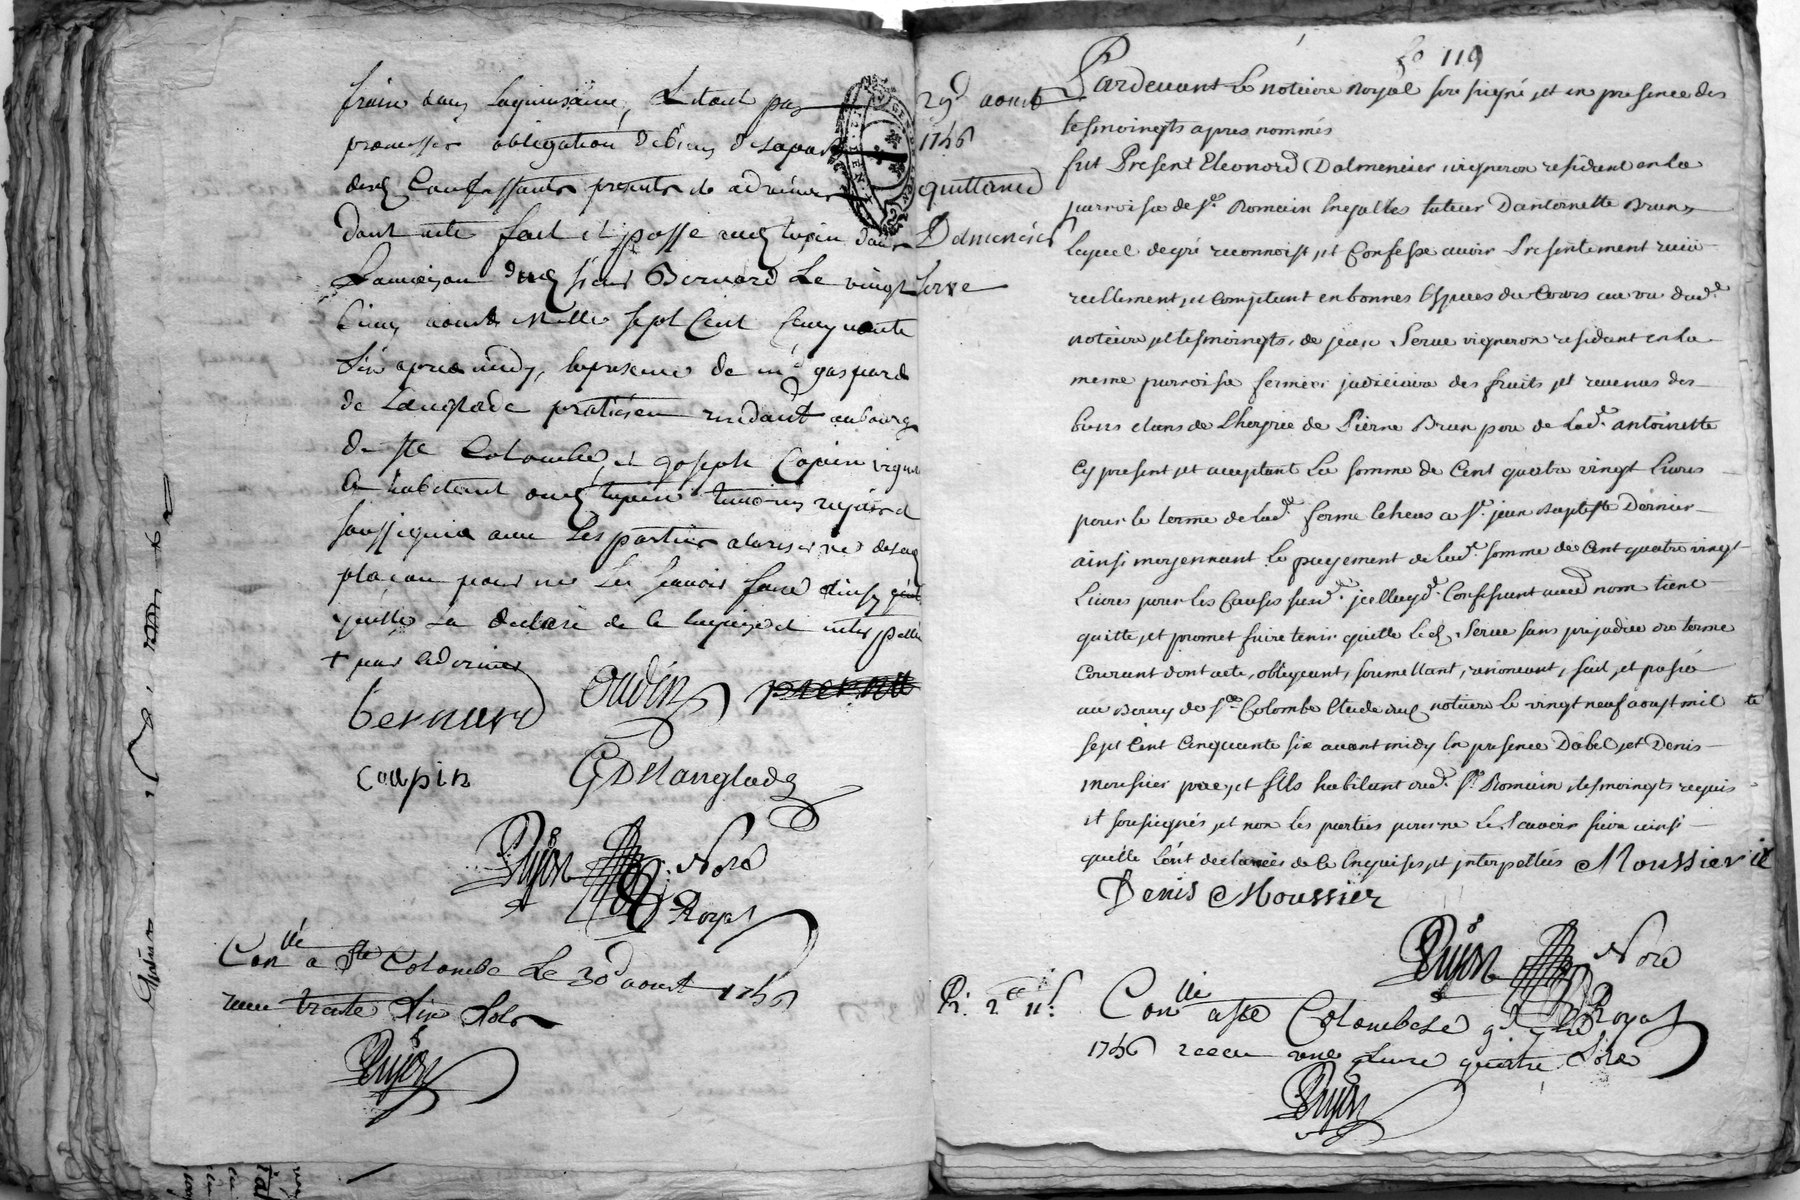 frain dans laquinsaine, Letout par
promesses obligation de biens desapart
desd Confessants presents de adverses
dont acte fait et passé aud tupin dans
Lamaison dud sieur Bernard Le vingt
Cinq aoust Mille sept Cent Cinquante
Six apres midy, en presence de me gaspard
de Langlade praticien residant au bourg
de Ste Colombe, et joseph Copin vigneron
habitant aud tupin temoins requis et
soussignés avec Les parties
pour ne Le scavoir faire ainsy
quelle La declaré de ce enquise et interpellée
+
bernard
oudin
coupin
G Delanglade
Dujon Nore
Royal
Conllé a Ste Colombe Le 30e aoust 1756
receu trente Six Sols
Dujon
fo 119
29e aoust
1756
quittance
Dalmencier
Serve
Pardevant Le notaire Royal sousigné, et en presence des
tesmoingts apres nommés
fut Present Eleonord Dalmencier vigneron residant en la
parroisse de St Romain Engalles tuteur Dantoinette Brun,
lequel degré reconnoist, et Confesse avoir Presentement receu
reellement, et Comptant en bonnes Especes du Cours au vu dudt
notaire et tesmoingts, de jean Serve vigneron residant en la
meme parroisse fermier judiciaire des fruits, et revenus des
biens dans de Lhoyrie de Pierre Brun pere de ladt antoinette
Cy present, et acceptant La somme de Cent quatre vingt Livres
pour le terme de ladt ferme Echeus a St jean Baptiste Dernier
ainsi moyennant le payement de ladt somme de Cent quatre vingt
Livres pour les Causes susdt, jcelluyd. Confessant aud nom tient
quitte, et promet faire tenir quitte led. Serve sans prejudice du terme
Courant dont acte, obligeant, soumettant, renonceant, fait, et passé
au Bourg de Ste Colombe Etude dud notaire le vingt neuf aoust mil
sept Cent Cinquante six avant midy En presence Dabel, et Denis
moussier pere, et fils habitant aud. St Romain, tesmoingts requis
et sousignés, et non les parties pour ne Le Scavoir faire ainsi
quelle Lont declarées de ce Enquises, et jnterpellées Moussier
Denis Moussier
Dujon Nore
Royal
Conllé a Ste Colombe Le 9e 7bre
1756 receu une Livre quatre Sols
Dujon